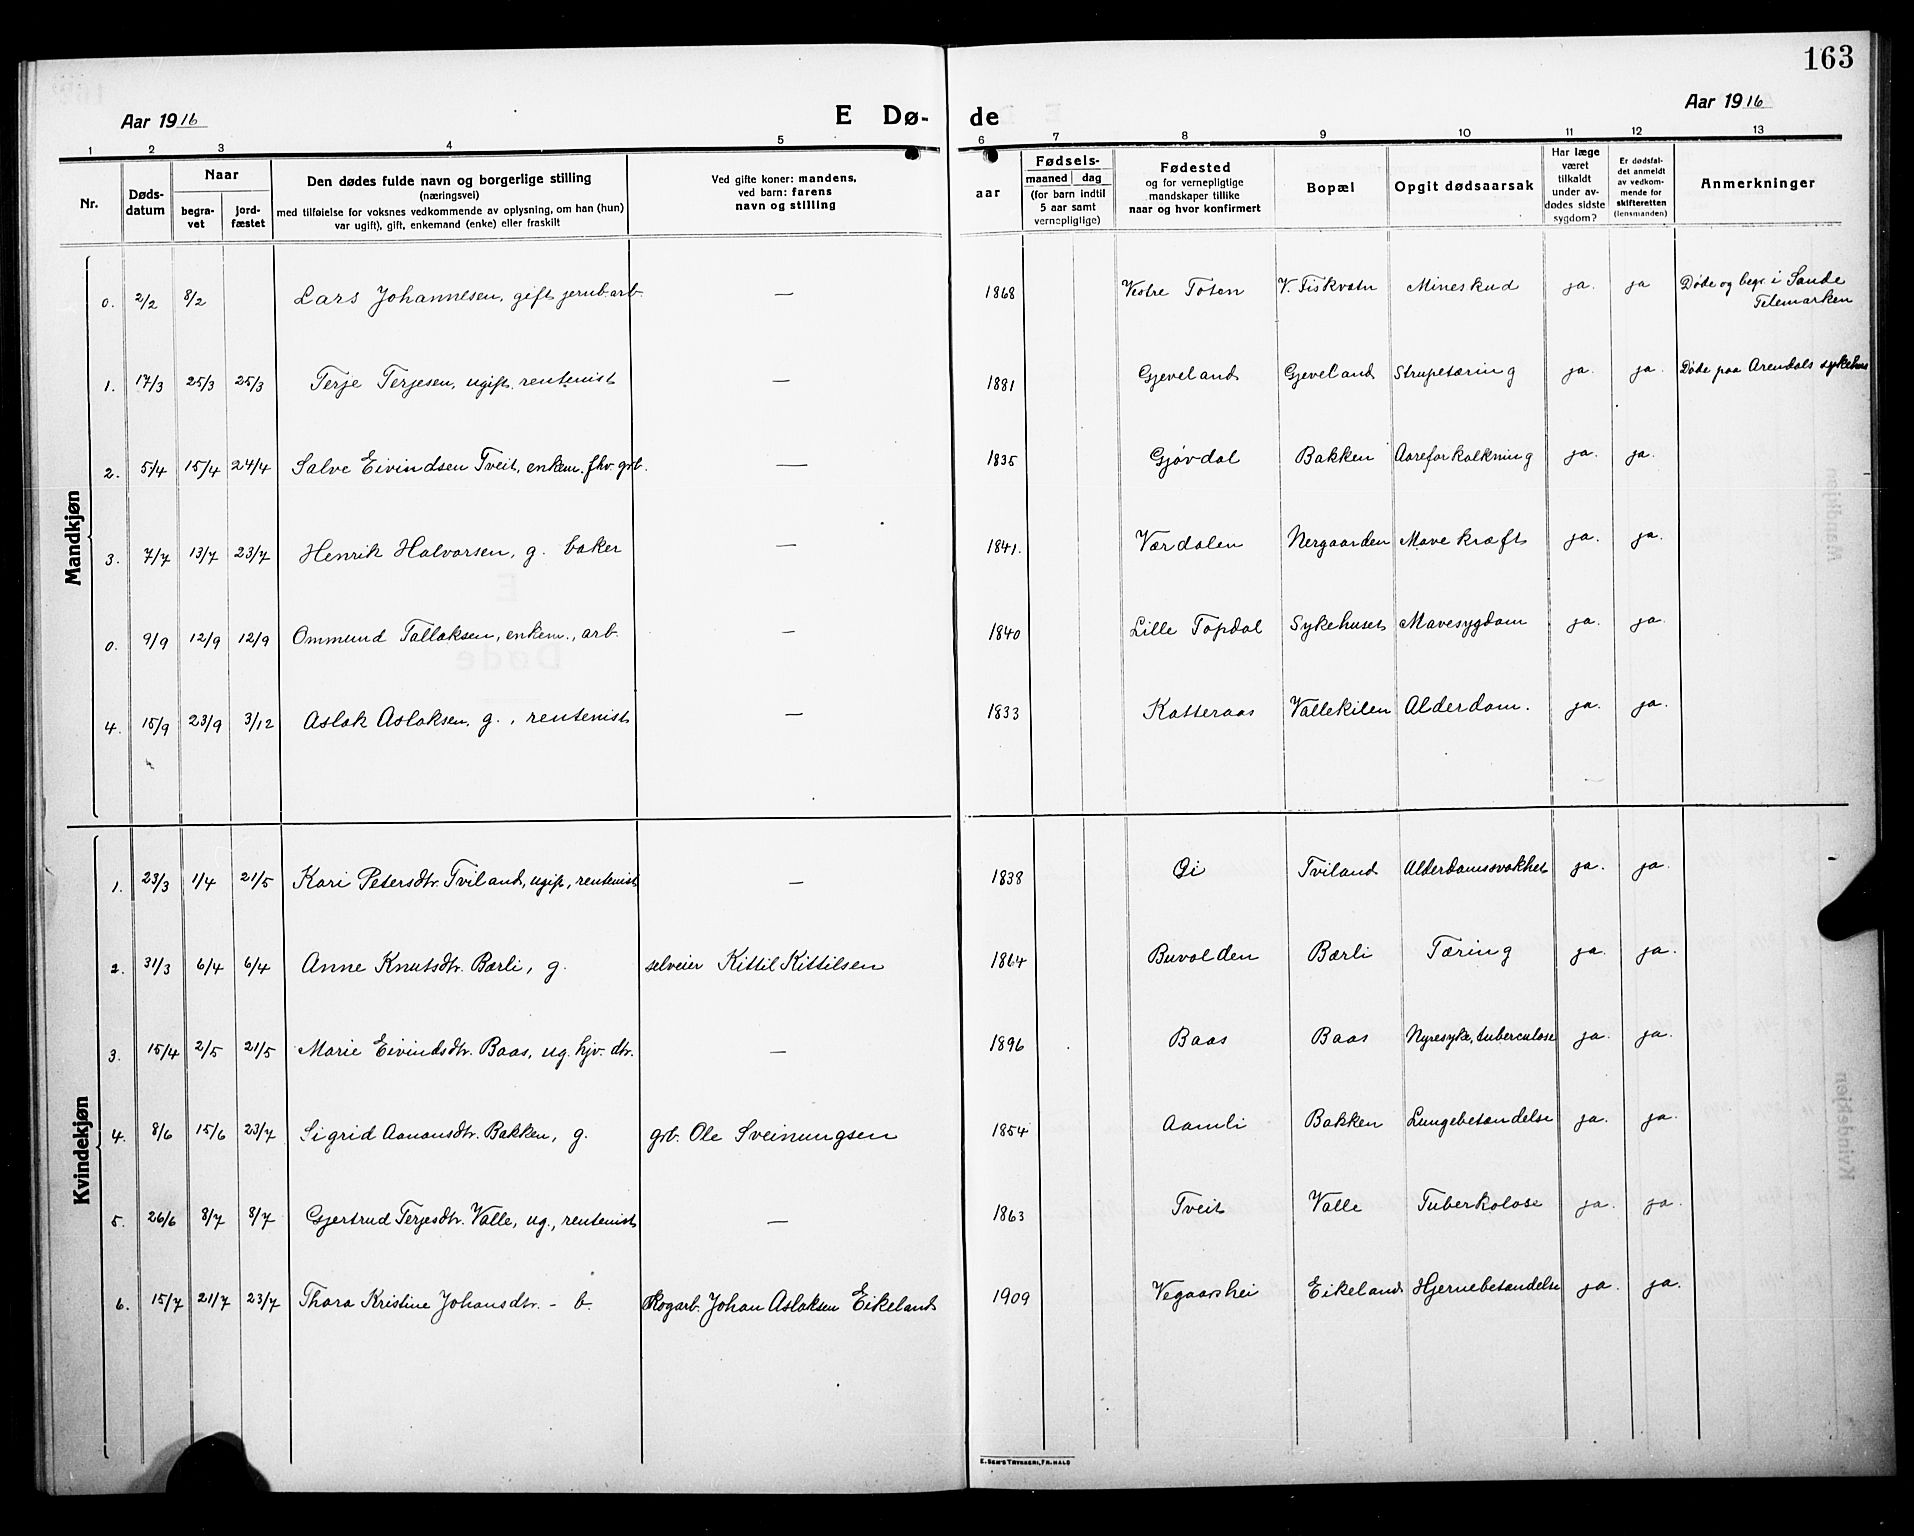 163
Aar 1916 E Dø- de Aar 1916
1 2 3 4 5 6 7 8 9 10 11 12 13
Nr. Døds-datum Naar begra-vet jord-fæstet Den dødes fulde navn og borgerlige stilling (næringsvei) med tilføielse for voksnes vedkommende av oplysning, om han (hun) var ugift), gift, enkemand (enke) eller fraskilt Ved gifte koner: mandens, ved barn: farens navn og stilling Fødsels- aar maaned dag (for barn indtil 5 aar samt vernepligtige) Fødested og for vernepligtige mandskaper tillike naar og hvor konfirmert Bopæl Opgit dødsaarsak Har læge været tilkaldt under av-dødes sidste sygdom? Er dødsfal-det anmeldt av vedkom-mende for skifteretten (lensmanden) Anmerkninger
Mandkjøn
0. 2/2 8/2 Lars Johannesen, gift jernb.arb. — 1868 Vestre Toten V. Fiskvatn Mineskud ja. ja Døde og begr. i Sande Telemarken
1. 17/3 25/3 25/3 Terje Terjesen, ugift. rentenist — 1881 Gjeveland Gjeveland Strupetæring ja. ja. Døde paa Arendals sykehus
2. 5/4 15/4 24/4 Salve Eivindsen Tveit, enkem. fhv. grb. — 1835 Gjøvdal Bakken Aareforkalkning ja. ja.
3. 7/7 13/7 23/7 Henrik Halvorsen, g. baker — 1841. Værdalen Nergaarden Mavekræft ja. ja.
0. 9/9 12/9 12/9 Ommund Tallaksen, enkem., arb. — 1840 Lille Topdal Sykehuset Mavesygdom ja. ja.
4. 15/9 23/9 3/12 Aslak Aslaksen, g., rentenist — 1833 Katteraas Vallekilen Alderdom. ja. ja.
Kvindekjøn
1. 23/3 1/4 21/5 Kari Petersdtr. Tviland, ugift, rentenist — 1838 Øi Tviland Alderdomssvakhet ja. ja.
2. 31/3 6/4 6/4 Anne Knutsdtr. Bærli, g. selveier Kittil Kittilsen 1864 Buvolden Bærli Tæring ja. ja.
3. 15/4 2/5 21/5 Marie Eivindsdtr. Baas, ug. hjv. dtr. — 1896 Baas Baas Nyresyke, tuberculose ja. ja.
4. 8/6 15/6 23/7 Sigrid Aanonsdtr. Bakken, g. grb. Ole Sveinungsen 1854 Aamli Bakken Lungebetændelse ja. ja.
5. 26/6 8/7 8/7 Gjertrud Terjesdtr. Valle, ug., rentenist — 1863 Tveit Valle Tuberkolose ja. ja.
6. 15/7 21/7 23/7 Thora Kristine Johansdtr. - b. Skogarb. Johan Aslaksen Eikeland 1909 Vegaarshei Eikeland Hjernebetændelse ja. ja.